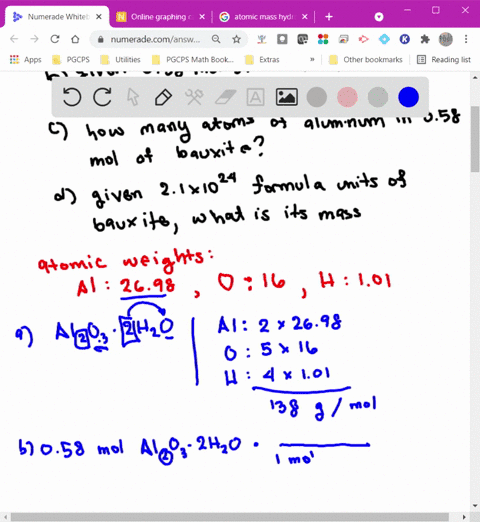 Numerade Whiteb
Online graphing c
atomic mass hydr
numerade.com/answ...
Apps
PGCPS
Utilities
PGCPS Math Book...
Extras
»
Other bookmarks
Reading list
c) how many atoms of aluminum in 0.58
mol of bauxite?
d) given 2.1x10²⁴ formula units of
bauxite, what is its mass
atomic weights:
Al: 26.98, O: 16, H: 1.01
a) Al₂O₃·2H₂O
Al: 2 × 26.98
O: 5 × 16
H: 4 × 1.01
138 g/mol
b) 0.58 mol Al₂O₃·2H₂O ·
1 mol